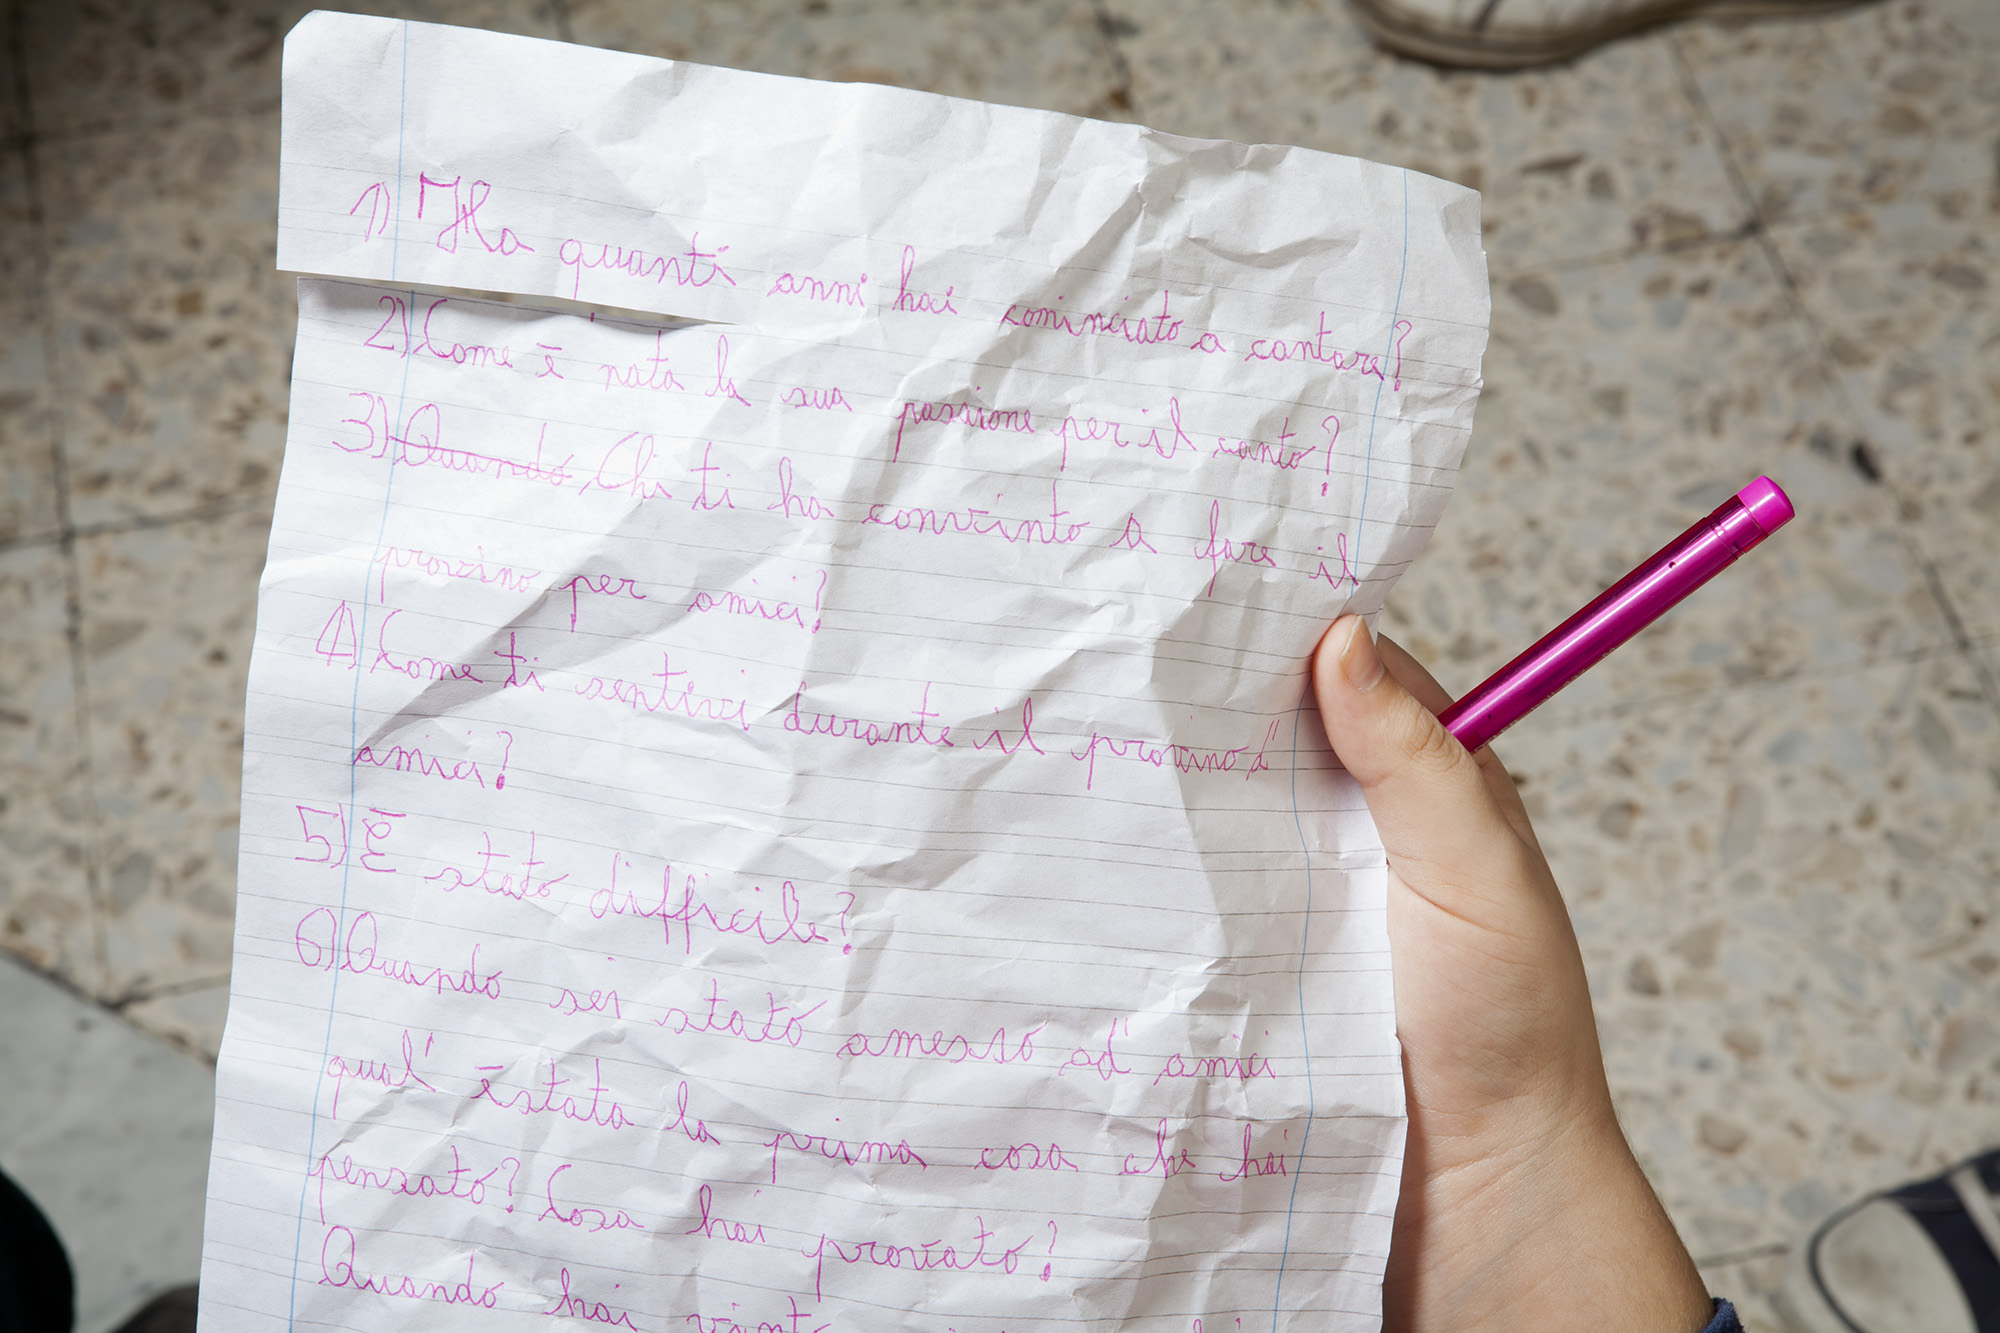 1) Ha quanti anni hai cominciato a cantare?
2) Come è nata la sua passione per il canto?
3) Quando Chi ti ha convinto a fare il
provino per amici?
4) Come ti sentivi durante il provino d'
amici?
5) È stato difficile?
6) Quando sei stato amesso ad' amici
qual' è stata la prima cosa che hai
pensato? Cosa hai provato?
Quando hai